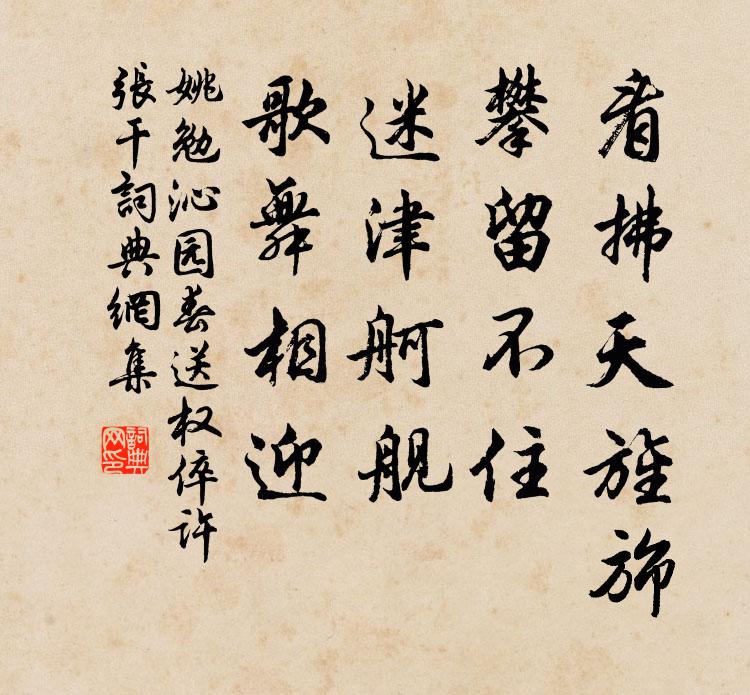 看拂天旌旆
攀留不住
迷津舸舰
歌舞相迎
姚勉沁园春送权倅许
張干詞典網集
詞典网印